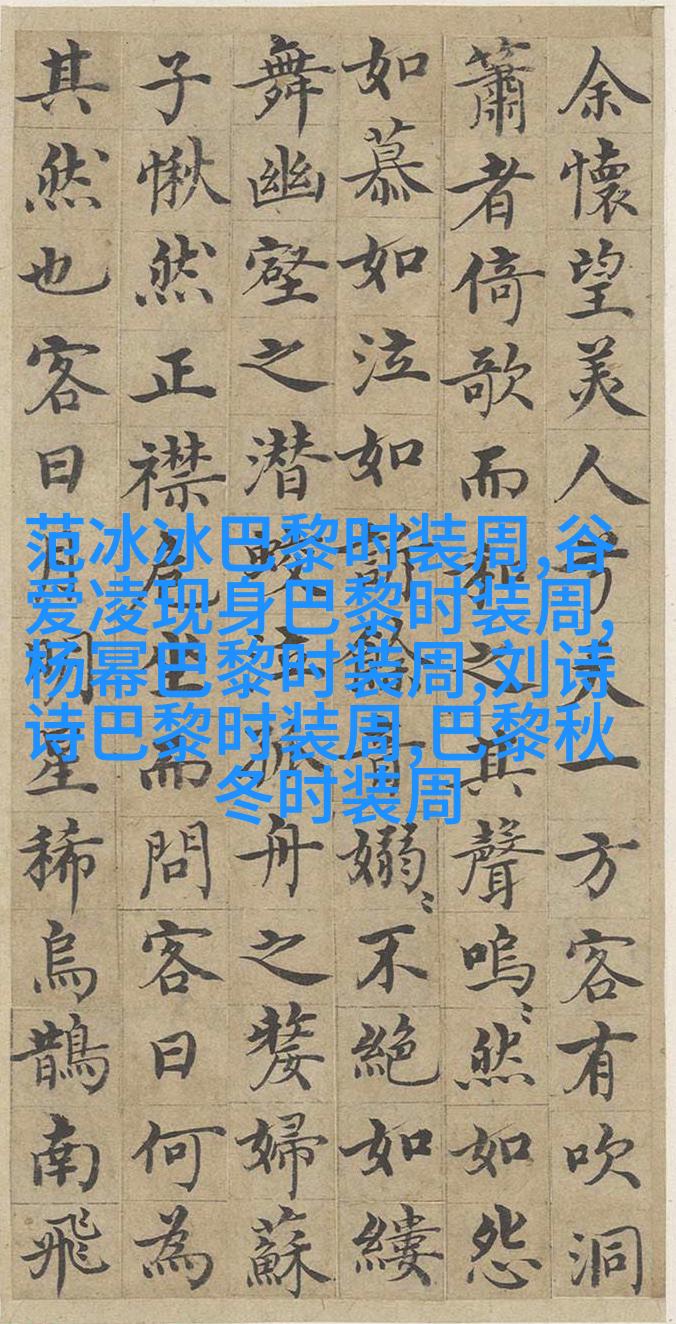 余懷望美人兮天一方客有吹洞
簫者倚歌而和之其聲嗚〻然如怨
如慕如泣如訴餘音嫋〻不絕如縷
舞幽壑之潛蛟泣孤舟之嫠婦蘇
子愀然正襟危坐而問客曰何為
其然也客曰月明星稀烏鵲南飛
范冰冰巴黎时装周,谷
爱凌现身巴黎时装周,
杨幂巴黎时装周,刘诗
诗巴黎时装周,巴黎秋
冬时装周